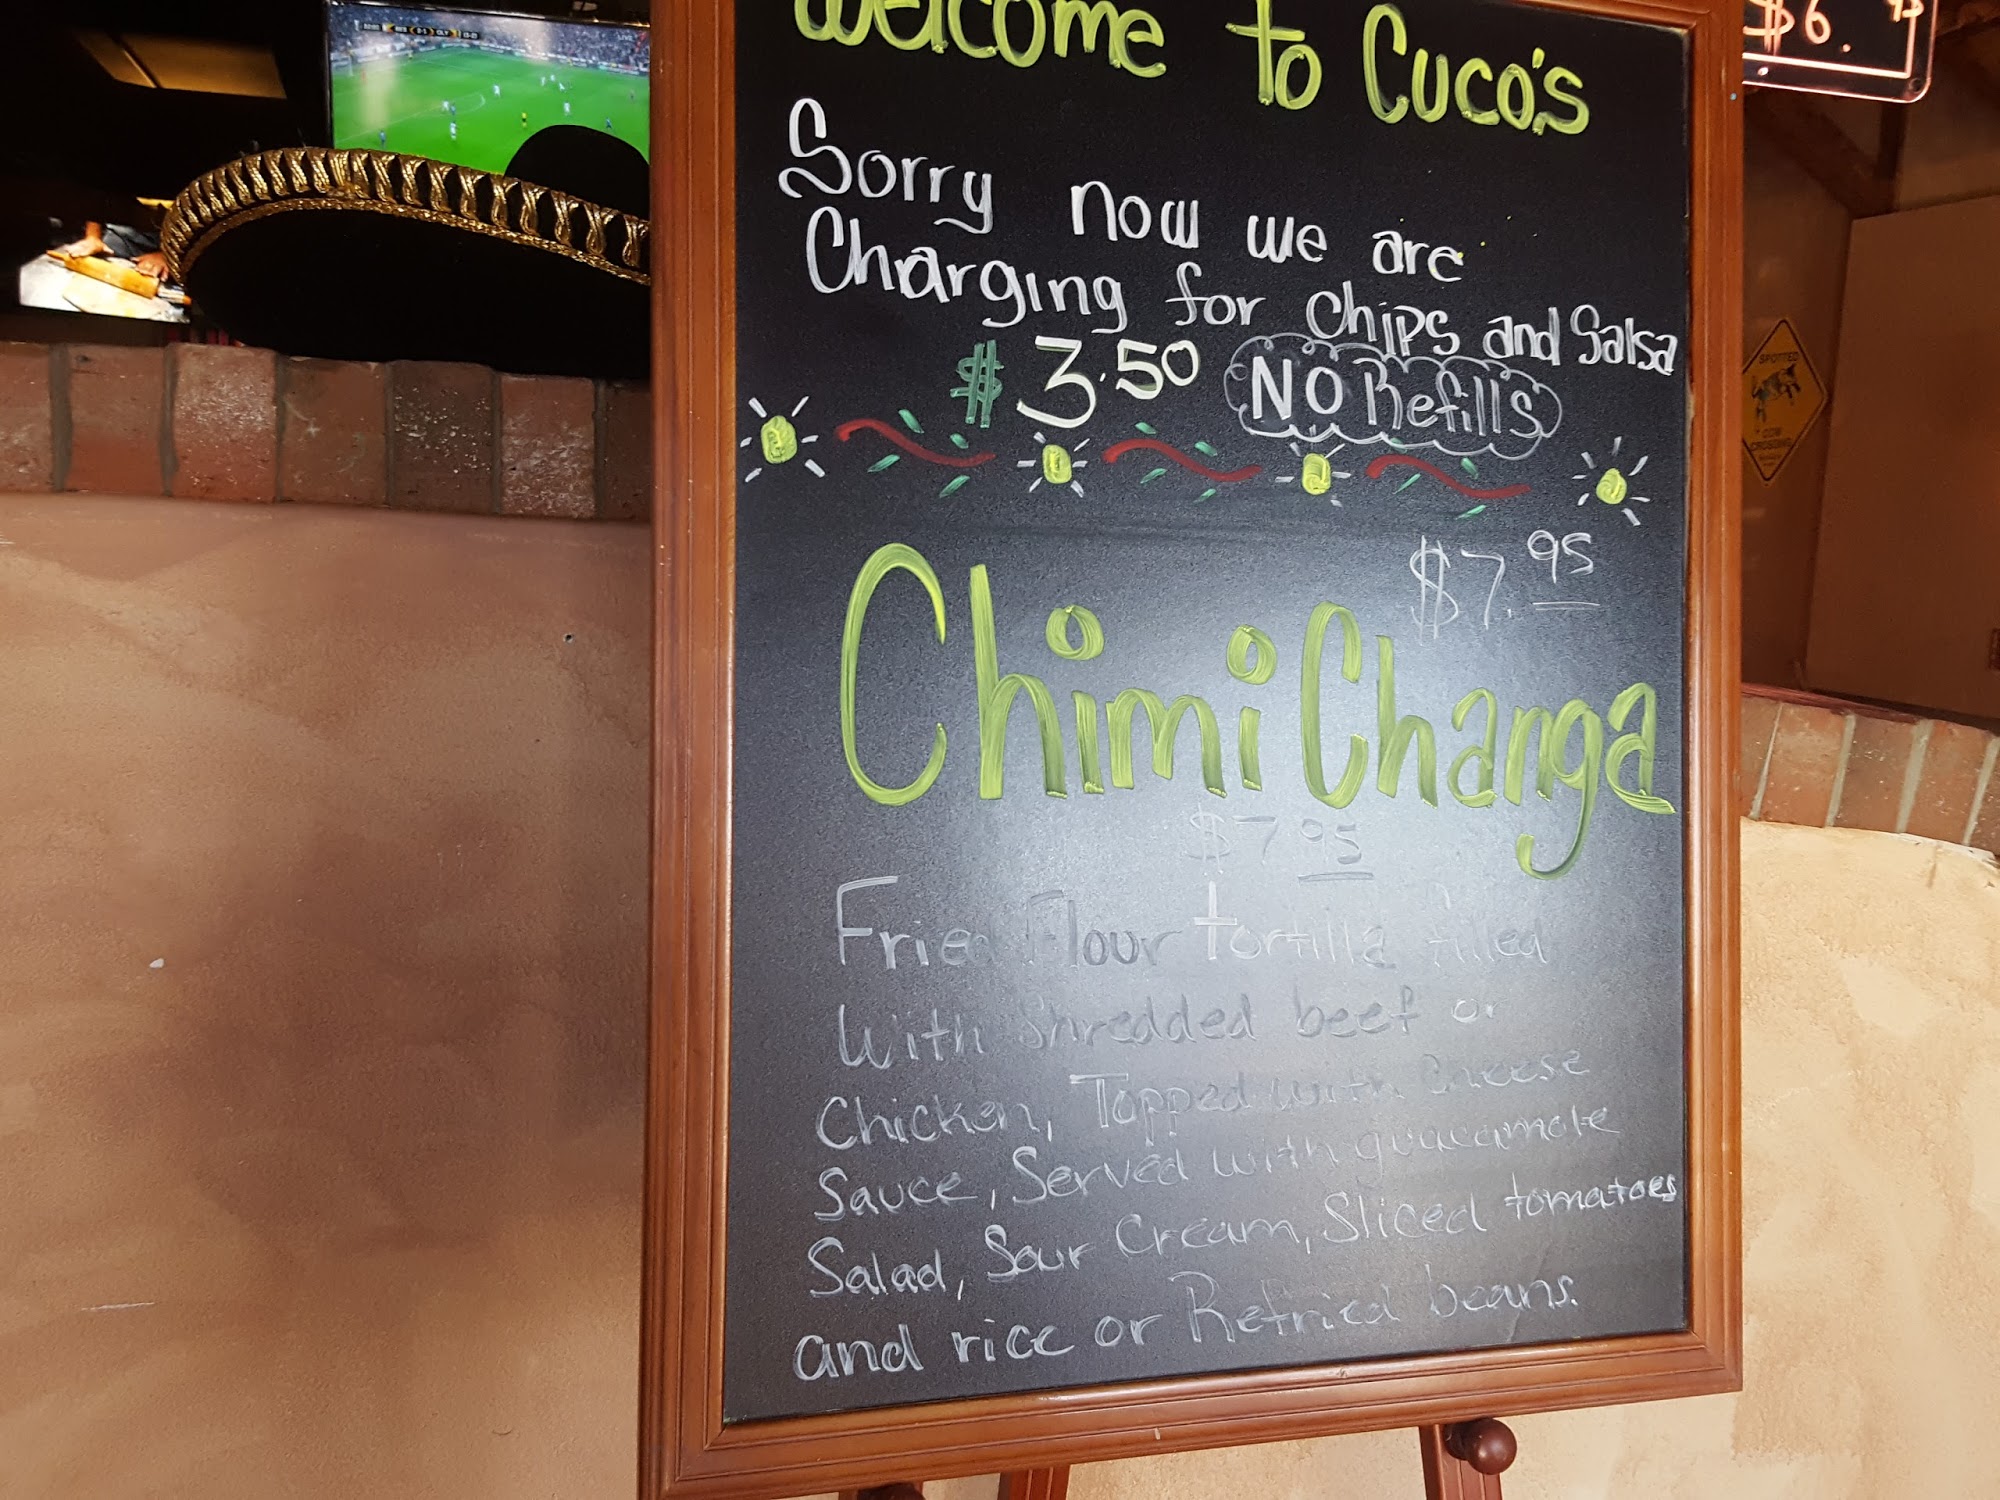 Welcome to Cuco's
Sorry now we are
Charging for Chips and Salsa
$3.50 NO Refills
$7.95
ChimiChanga
$7 95
Fried Flour Tortilla filled
With Shredded beef or
Chicken, Topped with Cheese
Sauce, Served with guacamole
Salad, Sour Cream, Sliced tomatoes
and rice or Refried beans.
$6.
SPOTTED
COW
CROSSING
LIVE